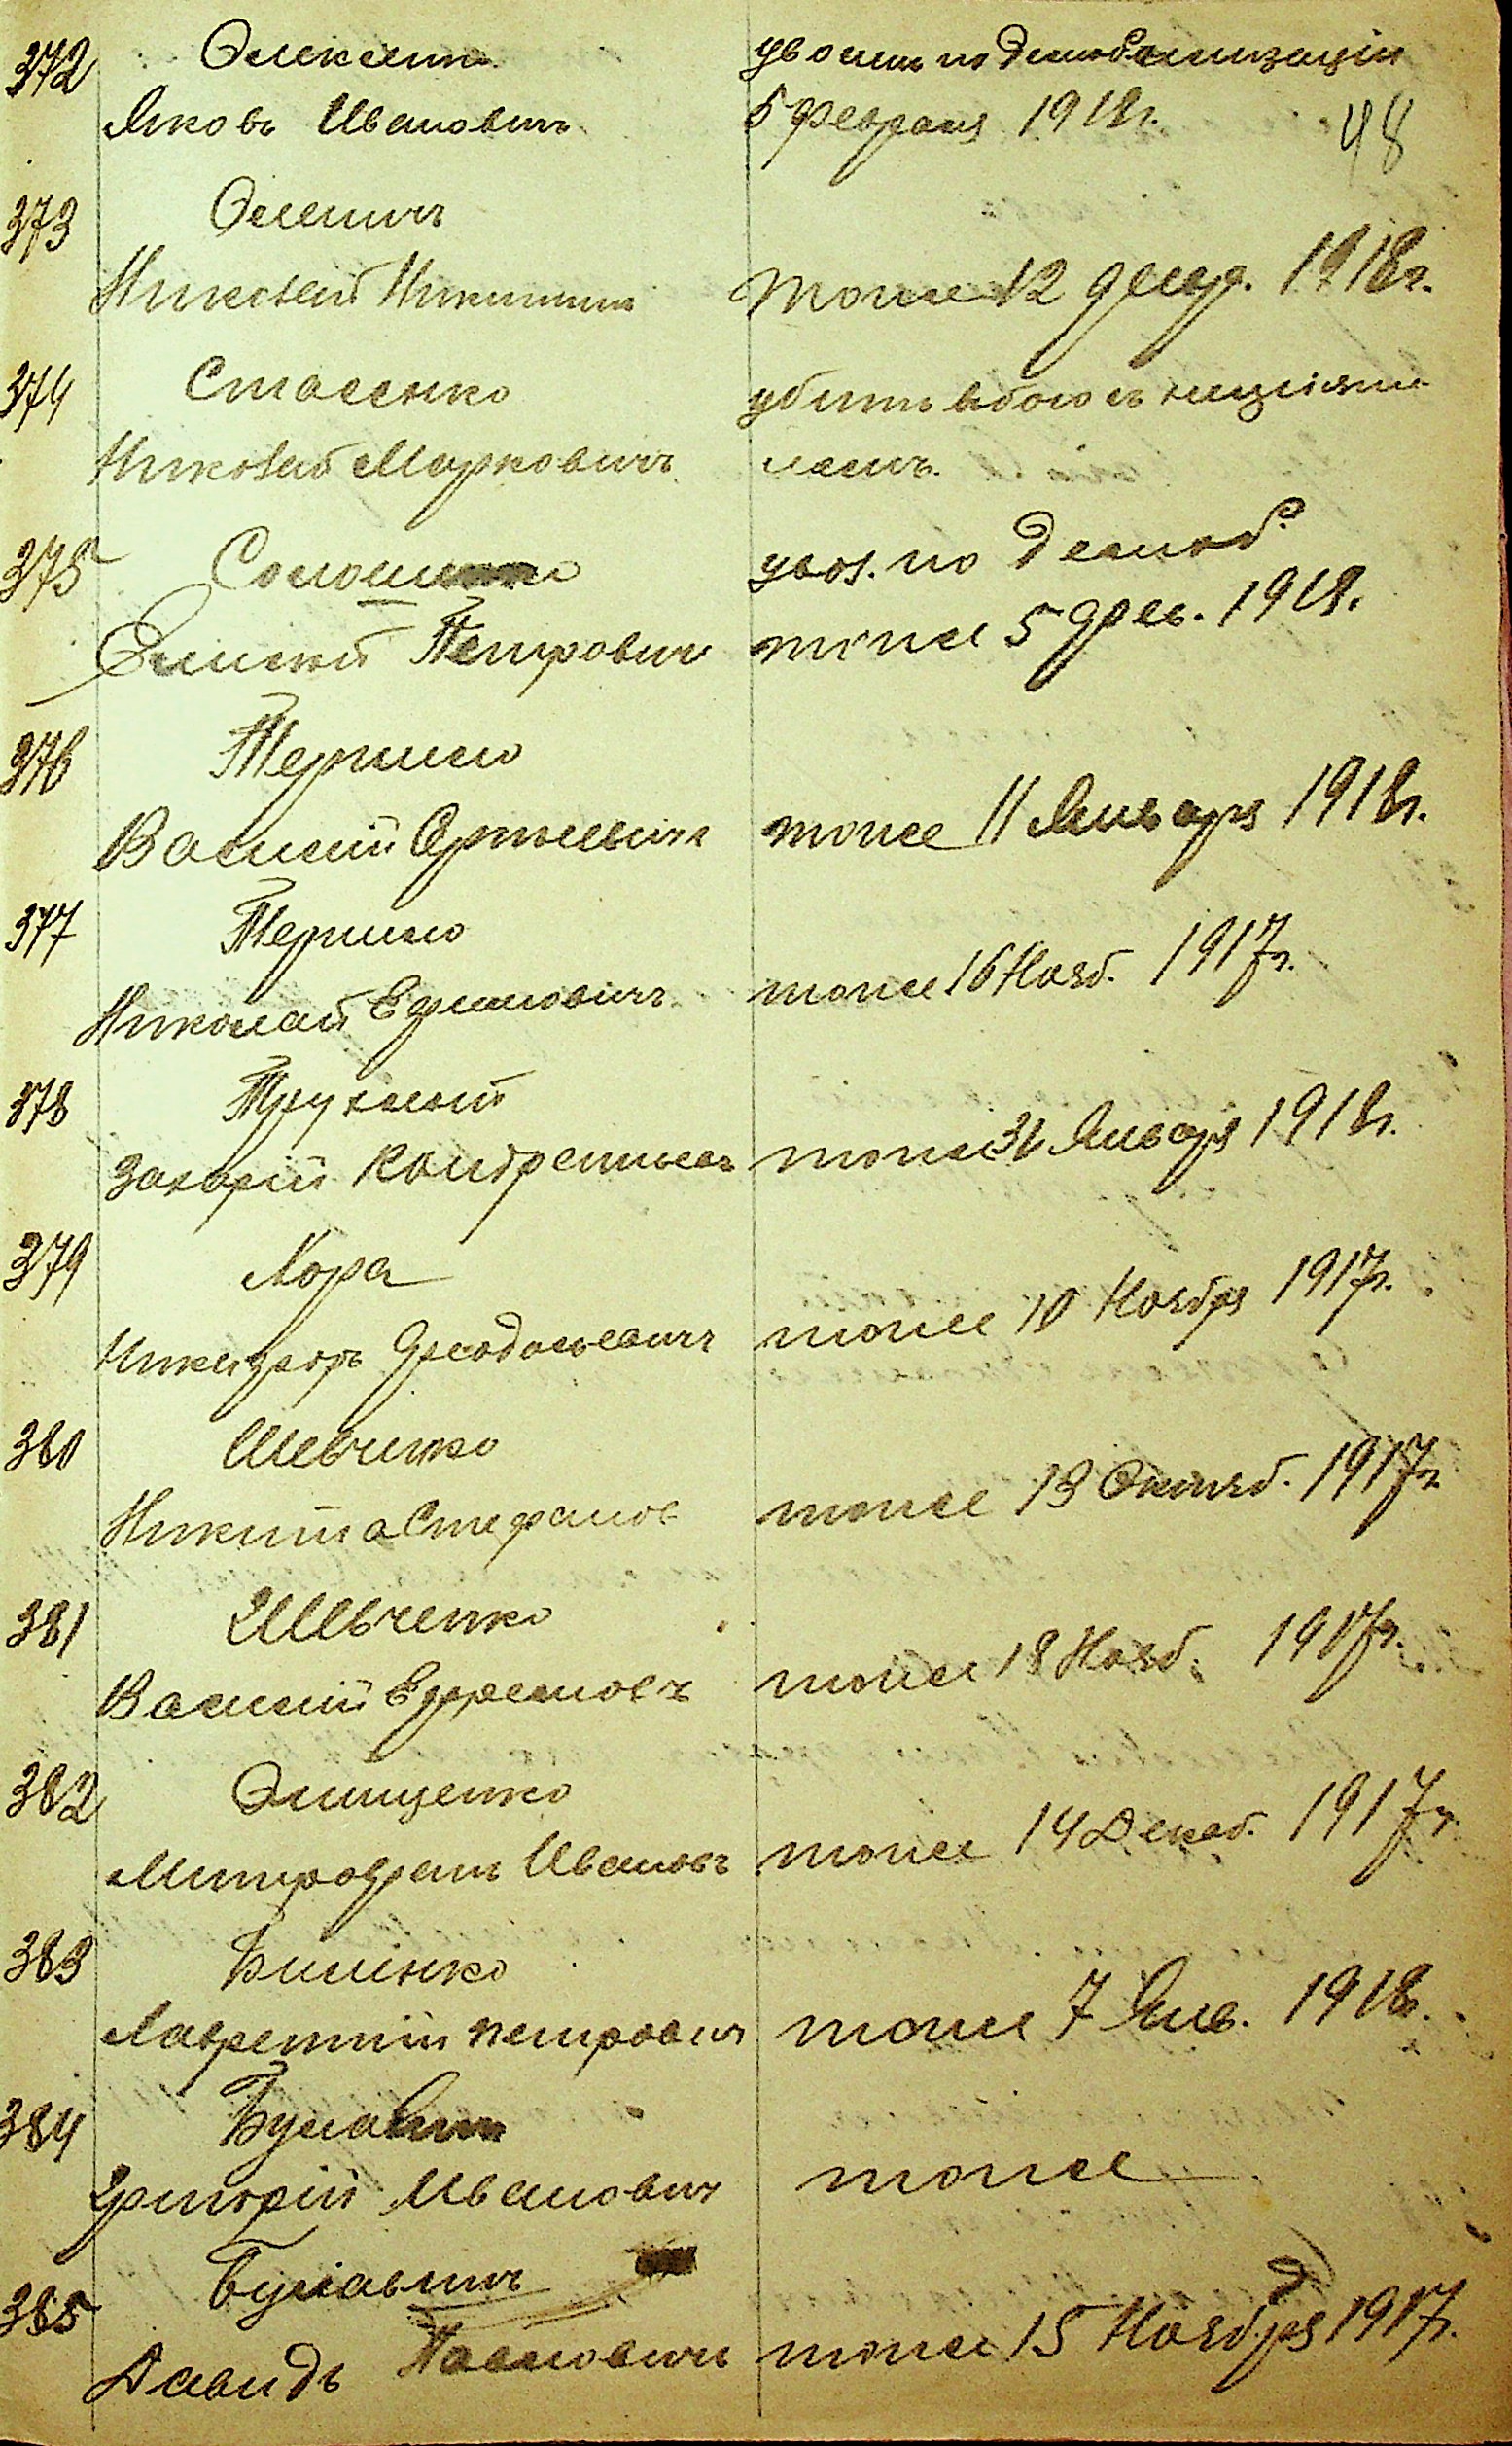 372 Олексенко уволенъ по демобилизаціи
Яковъ Ивановичъ 5 Февраля 1918г. 48
373 Оленичъ
Николай Никитичъ тоже 12 февр. 1918г.
374 Стасенко убитъ въ бою съ
Николай Марковичъ
375 увол. по демоб.
Петровичъ тоже 5 фев. 1918.
376 Терпило
Василій тоже 11 Января 1918г.
377 Терпило
Николай Ефимовичъ тоже 16 Нояб. 1917г.
378
Захарій Кондратьев тоже 31 Января 1918г.
379 Хора
Никифоръ Феодосьевичъ тоже 10 Ноября 1917г.
380 Шевченко
Никита Стефанов тоже 13 Октяб. 1917г.
381 Шевченко
Василій Ефремовъ тоже 18 Нояб. 1917г.
382 Онищенко
Митрофанъ Ивановъ тоже 14 Декаб. 1917г.
383 Биленко
Лаврентій Петрович тоже 7 Янв. 1918г.
384 Булавин
Григорій Иванович тоже
385 Булавинъ
Давидъ Павлович тоже 15 Ноября 1917г.